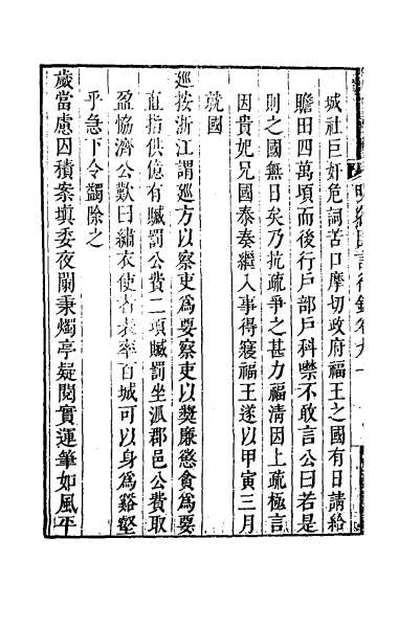 城社巨奸危詞苦口摩切政府福王之國有日請給
贍田四萬頃而後行戶部戶科噤不敢言公曰若是
則之國無日矣乃抗疏爭之甚力福清因上疏極言
因貴妃兄國泰奏繼入事得寢福王遂以甲寅三月
就國
廵按浙江謂廵方以察吏為要察吏以奬廉懲貪為要
直指供億有贓罰公費二項贓罰坐派郡邑公費取
盈協濟公歎曰繡衣使者表率百城可以身為谿壑
乎急下令蠲除之
歲當慮囚積案塡委夜闌秉燭亭疑閱實運筆如風平